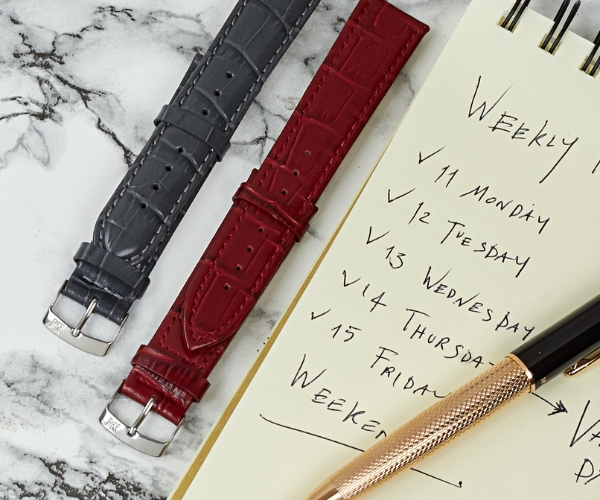 WEEKLY
✓ 11 MONDAY
✓ 12 TUESDAY
✓ 13 WEDNESDAY
✓ 14 THURSDA
✓ 15 FRIDAY
WEEKEN